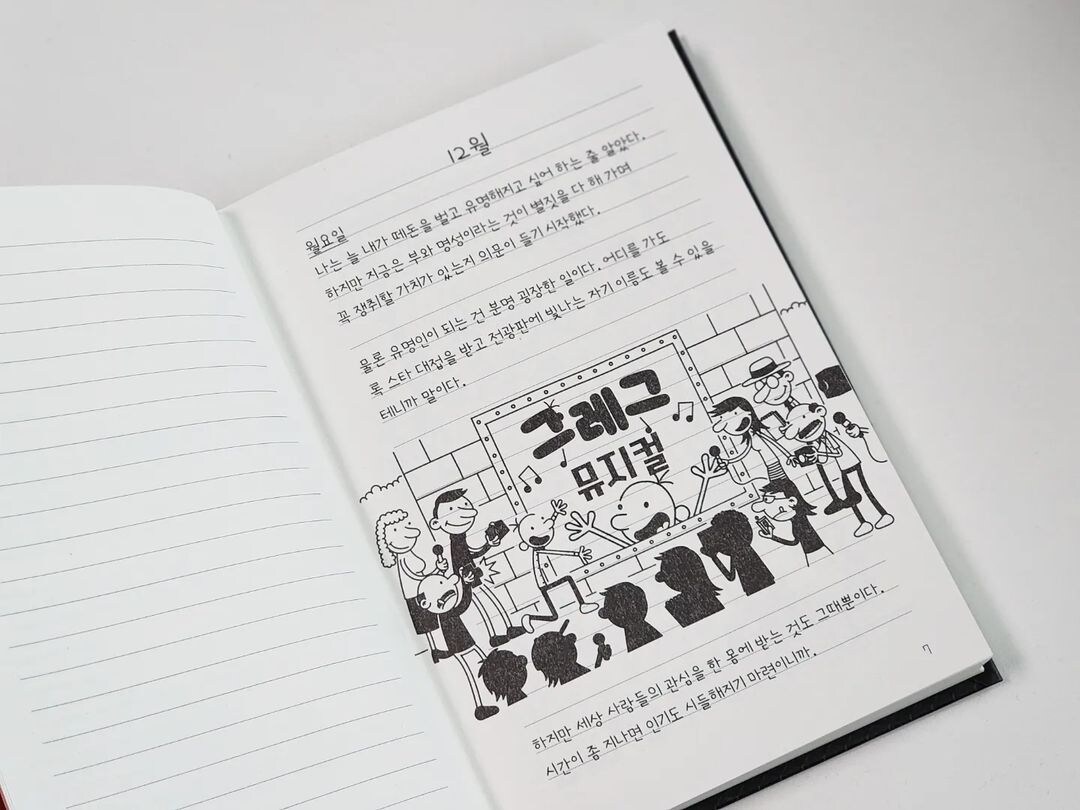 12월
월요일
나는 늘 내가 떼돈을 벌고 유명해지고 싶어 하는 줄 알았다.
하지만 지금은 부와 명성이라는 것이 별짓을 다 해 가며
꼭 쟁취할 가치가 있는지 의문이 들기 시작했다.
물론 유명인이 되는 건 분명 굉장한 일이다. 어디를 가도
록 스타 대접을 받고 전광판에 빛나는 자기 이름도 볼 수 있을
테니까 말이다.
그레그
뮤지컬
하지만 세상 사람들의 관심을 한 몸에 받는 것도 그때뿐이다.
시간이 좀 지나면 인기도 시들해지기 마련이니까.
7